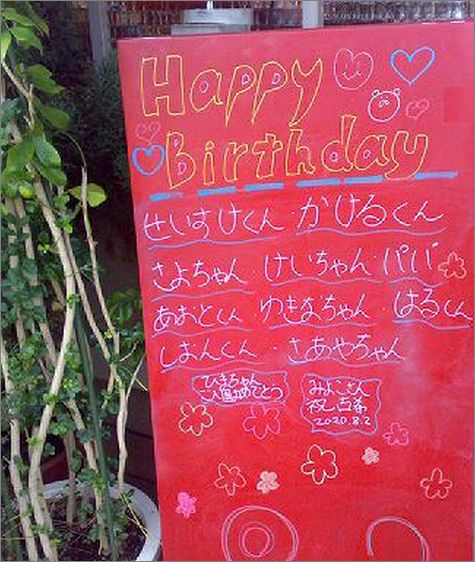 Happy
Birthday
せいすけくん・かけるくん
さよちゃん・けいちゃん・パパ
あおとくん ゆきなちゃん・はるくん
しおんくん・さあやちゃん
ひまちゃん
みよこさん
おめでとう
祝古希
2020.8.2